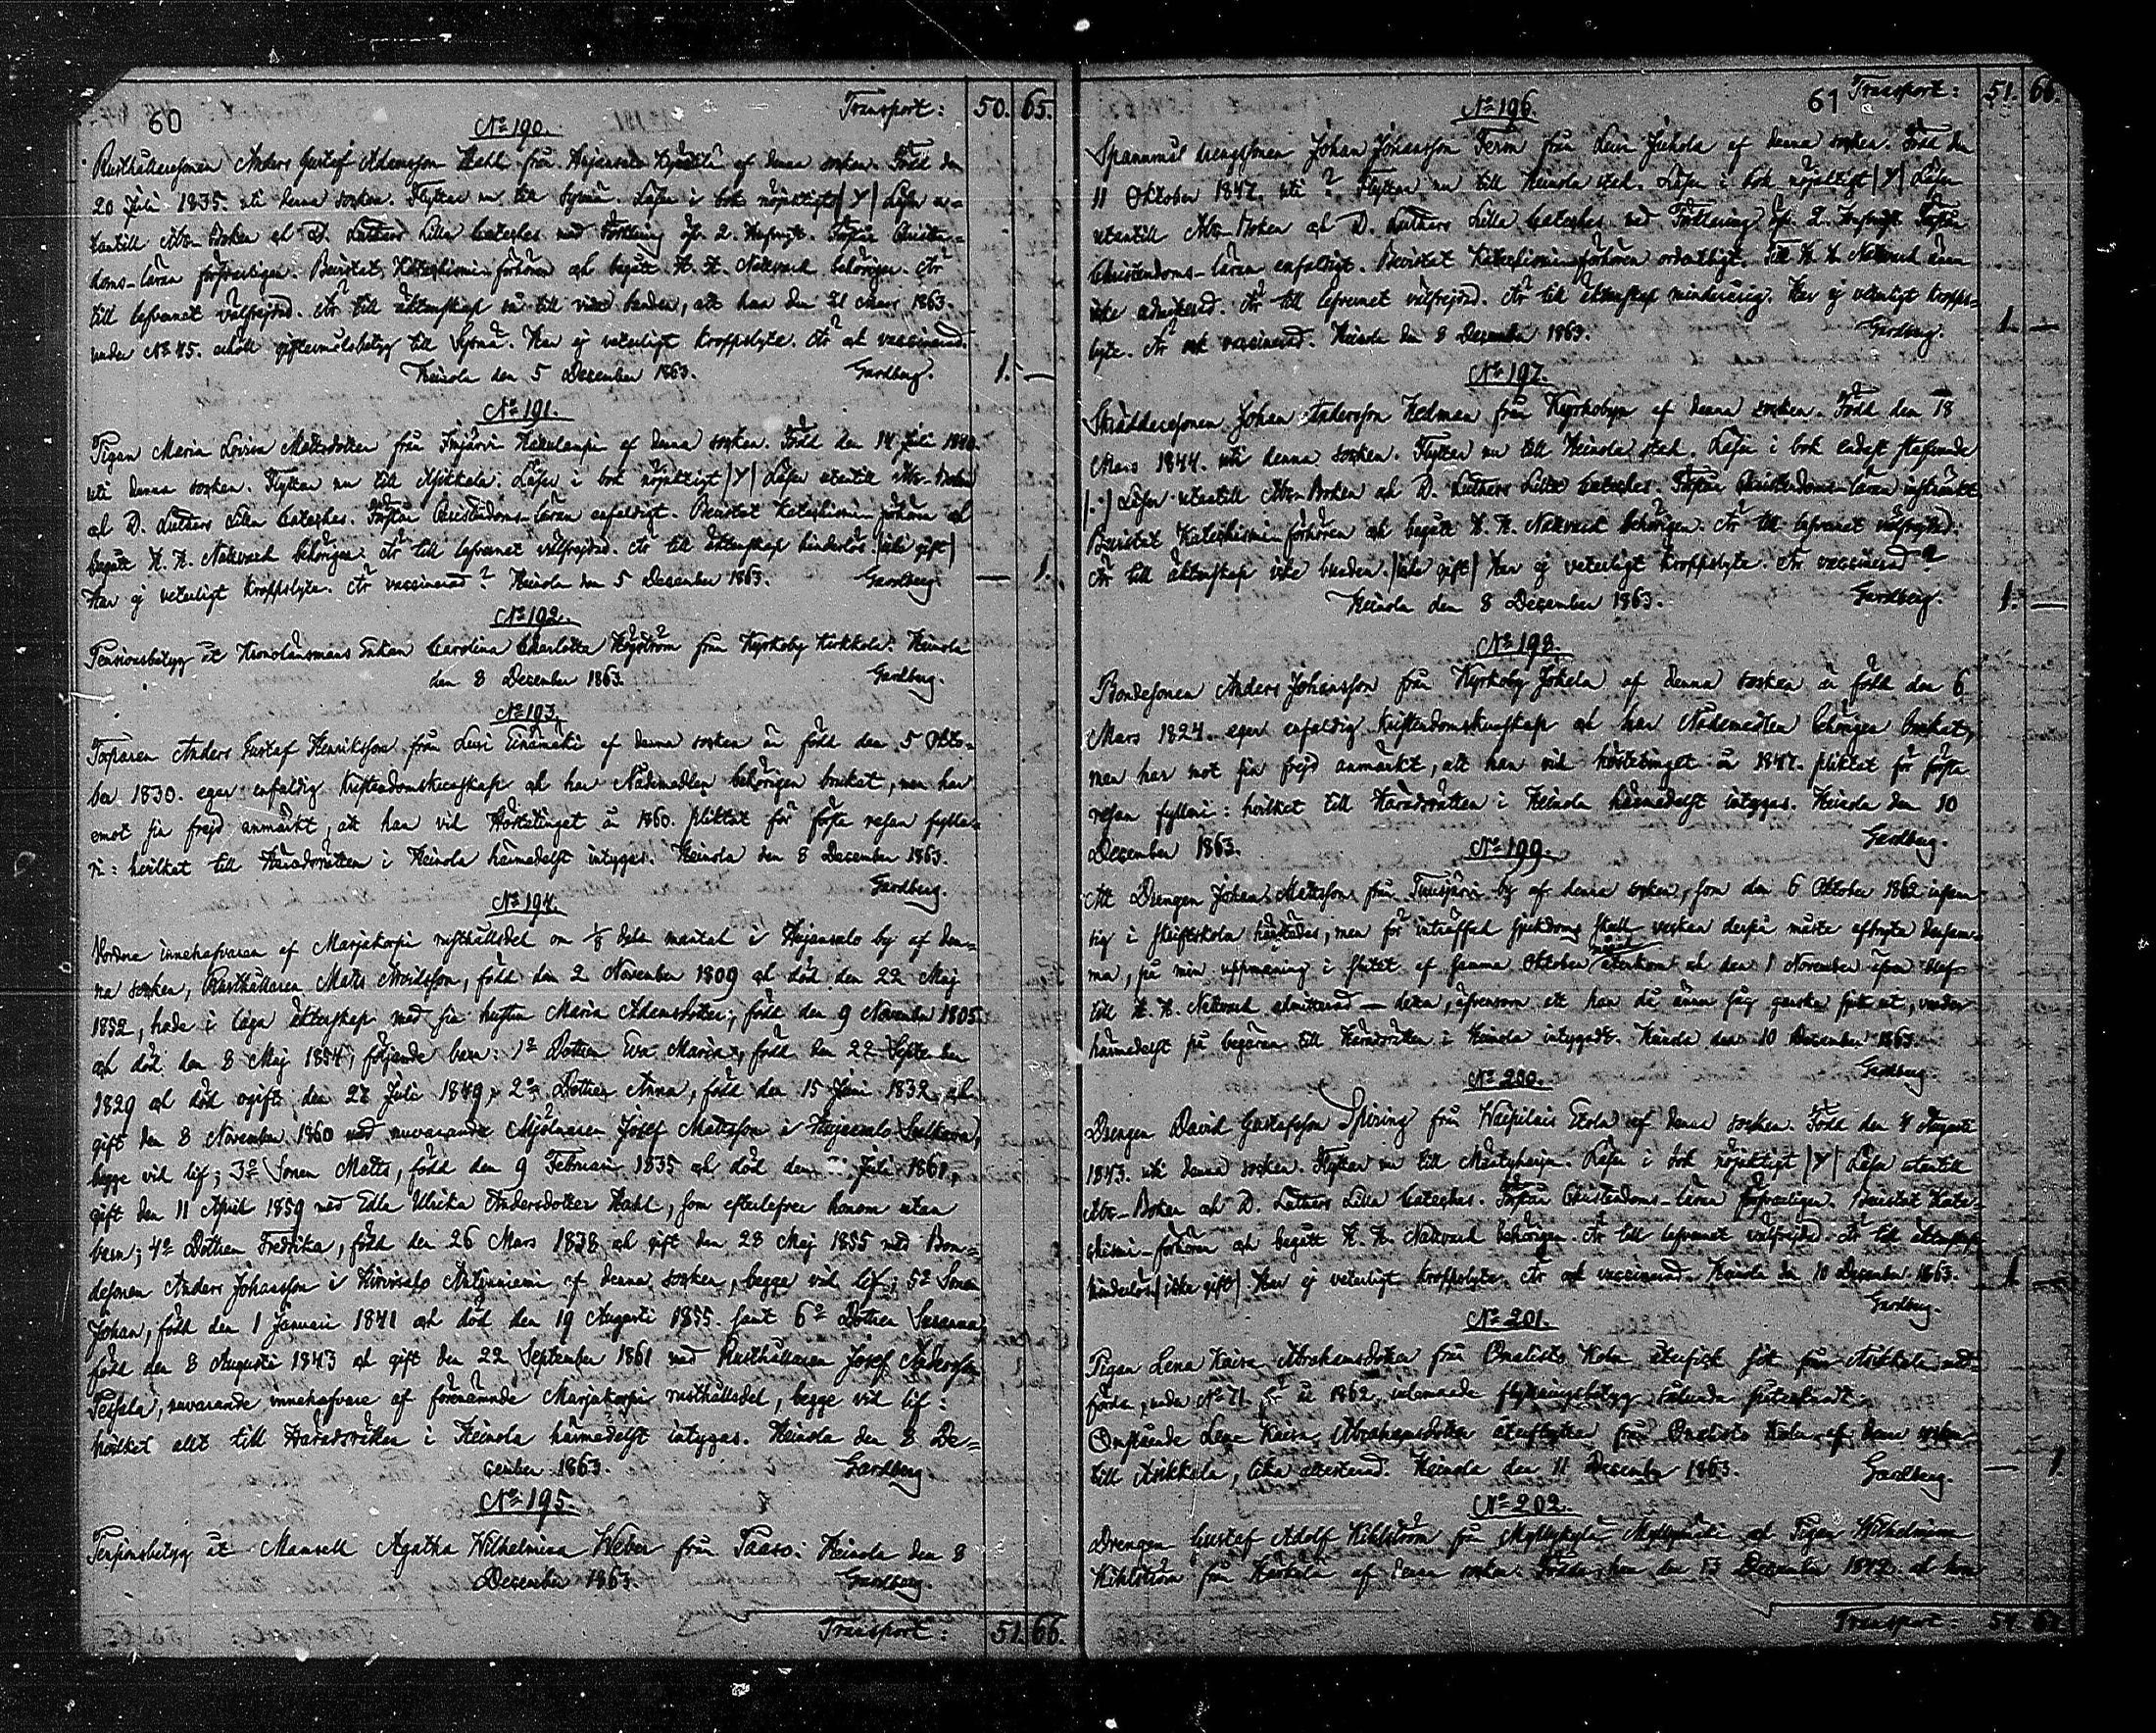 60
Transport: 50. 65.
No 190.
Rusthållaresonen Anders Gustaf Adamsson Hahl från Heinäsalo af denna socken. Född den
20 Juli 1835. uti denna socken. Flyttar nu till Sysmä. Läser i bok nöjaktigt |Y| Läser u=
tantill Abc-Boken och D. Luthers Lilla Cateches med Förklaring öfver 2. Hufvudst. Förstår Christen=
doms-läran försvarligen. Bevistat Katechismi-förhören och begått H. H. Nattvard behörigen. Är
till lefvernet välfrejdad. Är till äktenskap så till vida bunden, att han den 21 Mars 1863.
under No 45. erhöll giftermålsbetyg till Sysmä. Har ej veterligt kroppslyte. Är och vaccinerad.
Heinola den 5 December 1863. Gardberg. 1. —
No 191.
Pigan Maria Lovisa Mattsdotter från Imjärvi af denna socken. Född den 14 Juli 1840.
uti denna socken. Flyttar nu till Asikkala. Läser i bok nöjaktigt |Y| Läser utantill Abc-Boken
och D. Luthers Lilla Cateches. Förstår Christendoms-läran enfaldigt. Bevistat Katechismi-förhören och
begått H. H. Nattvard behörigen. Är till lefvernet välfrejdad. Är till äktenskap hinderlös |icke gift|
Har ej veterligt kroppslyte. Är vaccinerad? Heinola den 5 December 1863. Gardberg. — 1.
No 192.
Pensionsbetyg åt Kronolänsmans Enkan Carolina Charlotta Högström från Kyrkoby Kirkkola. Heinola
den 8 December 1863. Gardberg.
No 193.
Torparen Anders Gustaf Henriksson från Lusi af denna socken är född den 5 Okto=
ber 1830. eger enfaldig kristendomskunskap och har Nådemedlen behörigen brukat, men har
emot sin frejd anmärkt, att han vid Hösttinget år 1860. pliktat för första resan fylle=
ri: hvilket till Häradsrätten i Heinola härmedelst intygas. Heinola den 8 December 1863.
Gardberg.
No 194.
Fordne innehafvaren af Marjakorpi rusthållsdel om 1/8 dels mantal i Heinäsalo by af den=
na socken, Rusthållaren Matts, född den 2 November 1809 och död den 22 Maj
1852, hade i laga äktenskap med sin hustru Maria Adamsdotter, född den 9 November 1805
och död den 8 Maj 1854, följande barn: 1o Dottren Eva Maria, född den 22 September
1829 och död ogift den 27 Juli 1849, 2o Dottren Anna, född den 15 Juni 1832 och
gift den 8 November 1860 med nuvarande Mjölnaren Josef Mattsson
begge vid lif; 3o Sonen Matts, född den 9 Februari 1835 och död den Juli 1861,
gift den 11 April 1859 med Edla Ulrika Andersdotter Hahl, som efterlefver honom utan
barn; 4o Dottren Fredrika, född den 26 Mars 1838 och gift den 28 Maj 1855 med Bon=
desonen Anders Johansson i Hirvisalo af denna socken, begge vid lif; 5o Sonen
Johan, född den 1 Januari 1841 och död den 19 Augusti 1855. samt 6o Dottren Susanna,
född den 8 Augusti 1843 och gift den 22 September 1861 med Rusthållaren Josef Andersson
nuvarande innehafvare af förenämnde Marjakorpi rusthållsdel, begge vid lif:
hvilket allt till Häradsrätten i Heinola härmedelst intygas. Heinola den 8 De=
cember 1863. Gardberg
No 195.
Pensionsbetyg åt Mamsell Agatha Wilhelmina Weber från Paaso: Heinola den 8
December 1863. Gardberg.
Transport: 51. 66.
61
Transport: 51. 66.
No 196.
Johan Johansson Ferm från Lusi af denna socken. Född den
11 Oktober 1847. uti ? Flyttar nu till Heinola stad. Läser i bok nöjaktigt |Y| Läser
utantill Abc-Boken och D. Luthers Lilla Cateches med Förklaring öfver 2. Hufvudst. Förstår
Christendoms-läran enfaldigt. Bevistat Katechismi-förhören ordentligt. Till H. H. Nattvard ännu
icke admitterad. Är till lefvernet välfrejdad. Är till äktenskap minderårig. Har ej veterligt kropps=
lyte. Är och vaccinerad. Heinola den 8 December 1863. Gardberg. 1. —
No 197.
Skräddaresonen Johan Andersson Hedman från Kyrkobyn af denna socken. Född den 18
Mars 1844. uti denna socken. Flyttar nu till Heinola stad. Läser i bok endast stafvande
|:| Läser utantill Abc-Boken och D. Luthers Lilla Cateches. Förstår Christendoms-läran inskränkt.
Bevistat Katechismi-förhören och begått H. H. Nattvard behörigen. Är till lefvernet välfrejdad.
Är till äktenskap icke bunden. |icke gift| Har ej veterligt kroppslyte. Är vaccinerad?
Heinola den 8 December 1863. Gardberg. 1. —
No 198.
Bondesonen Anders Johansson från Kyrkoby Jokela af denna socken är född den 6
Mars 1824. eger enfaldig kristendomskunskap och har Nådemedlen behörigen brukat,
men har mot sin frejd anmärkt, att han vid hösttinget år 1847. pliktat för första
resan fylleri: hvilket till Häradsrätten i Heinola härmedelst intygas. Heinola den 10
December 1863. Gardberg.
No 199.
Att Drengen Johan Mattsson från Tuusjärvi by af denna socken, som den 6 Oktober 1862
sig i skriftskola men för inträffad sjukdoms skull veckan derpå måste afbryta densam=
ma, på min uppmaning i slutet af samma Oktober månad återkom och den 1 November äfven blef
till H. H. Nattvard admitterad — detta, äfvensom att han då ännu såg ganska sjuk ut, varder
härmedelst på begäran till Häradsrätten i Heinola intygadt. Heinola den 10 December 1863.
Gardberg.
No 200.
Drengen David Gustafsson Spiring från af denna socken. Född den 4 Augusti
1843. uti denna socken. Flyttar nu till Mäntyharju. Läser i bok nöjaktigt |Y| Läser utantill
Abc-Boken och D. Luthers Lilla Cateches. Förstår Christendoms-läran försvarligen. Bevistat Kate=
chismi-förhören och begått H. H. Nattvard behörigen. Är till lefvernet välfrejdad. Är till äktenskap
hinderlös |icke gift| Har ej veterligt kroppslyte. Är och vaccinerad. Heinola den 10 December 1863. 1. —
Gardberg.
No 201.
Pigan Lena Kaisa Abrahamsdotter från Onalisto återfick sitt från Asikkala med=
förda, under No 71 för år 1862. inlemnade flyttningsbetyg sålunda påtecknadt:
Omstående Lena Kaisa Abrahamsdotter återflyttar från Onalisto af denna socken
till Asikkala, lika attesterad. Heinola den 11 December 1863. Gardberg. — 1.
No 202.
Drengen Gustaf Adolf Kihlström från Myllykylä och Pigan Wilhelmina
Kihlström från Härkälä af denna socken. Födde, han den 13 December 1842. och hon
Transport: 54. 67.